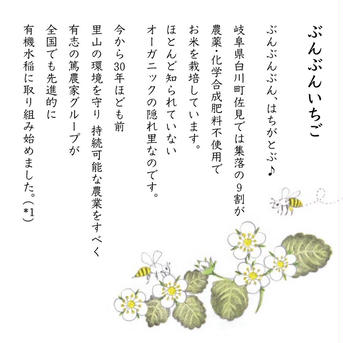 ぶんぶんいちご
ぶんぶんぶん、はちがとぶ♪
岐阜県白川町佐見では集落の9割が
農薬・化学合成肥料不使用で
お米を栽培しています。
ほとんど知られていない
オーガニックの隠れ里なのです。
今から30年ほども前
里山の環境を守り 持続可能な農業をすべく
有志の篤農家グループが
全国でも先進的に
有機水稲に取り組み始めました。(*1)